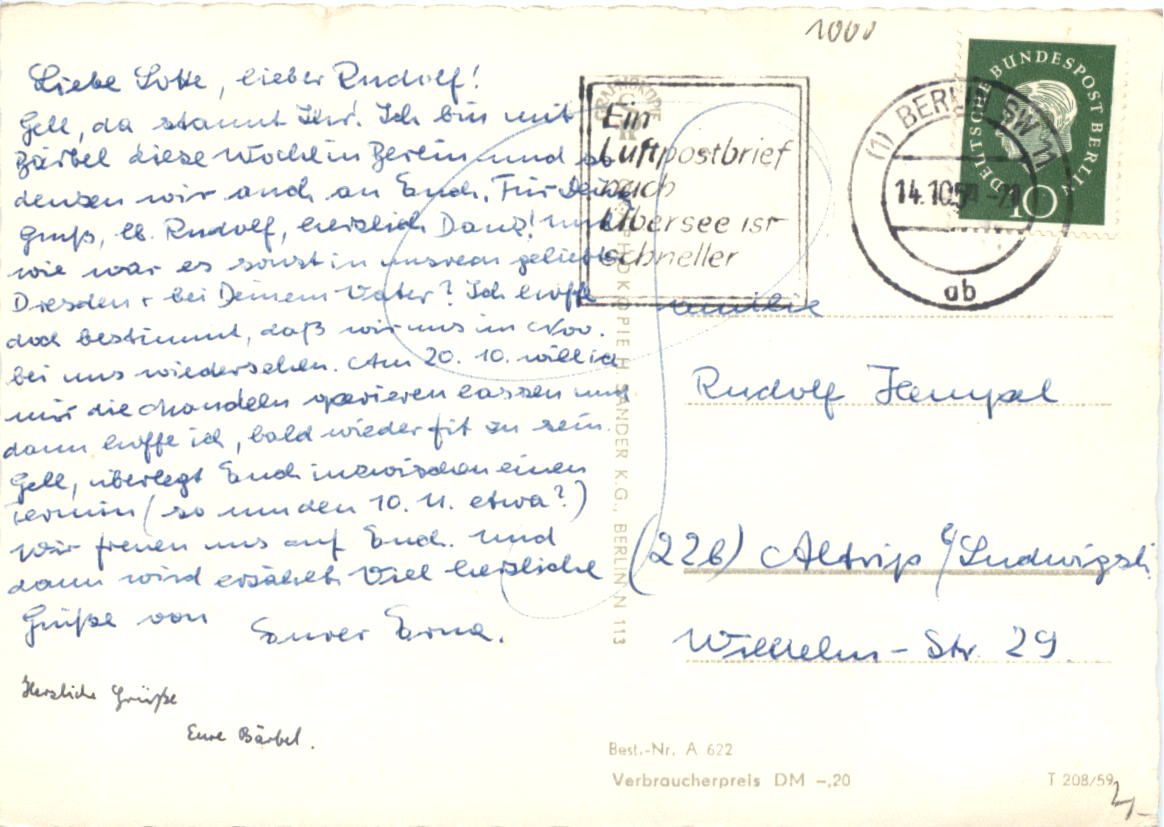 1000
Liebe Lotte, lieber Rudolf!
Gell, da staunt Ihr! Ich bin mit
Bärbel diese Woche in Berlin und so
denken wir auch an Euch. Für Deinen
Gruß, lb. Rudolf, herzlich Dank! Und
wie war es sonst in unsrem geliebten
Dresden + bei Deinem Vater? Ich hoffe
doch bestimmt, daß wir uns im Nov.
bei uns wiedersehen. Am 20. 10. will ich
mir die Mandeln operieren lassen und
dann hoffe ich, bald wieder fit zu sein.
Gell, überlegt Euch inzwischen einen
Termin (so um den 10. 11. etwa?)
Wir freuen uns auf Euch. Und
dann wird erzählt. Viel herzliche
Grüße von
Eurer Erna.
Herzliche Grüße
Eure Bärbel.
Ein
Luftpostbrief
nach
Übersee ist
schneller
(1) BERLIN SW 11
14.10.59
ab
DEUTSCHE BUNDESPOST BERLIN
10
Familie
Rudolf Hempel
(22b) Altrip /Ludwigsh.
Wilhelm-Str. 29.
KLINKE & CO.
BERLIN N 113
Best.-Nr. A 622
Verbraucherpreis DM -,20
T 208/59
4,-